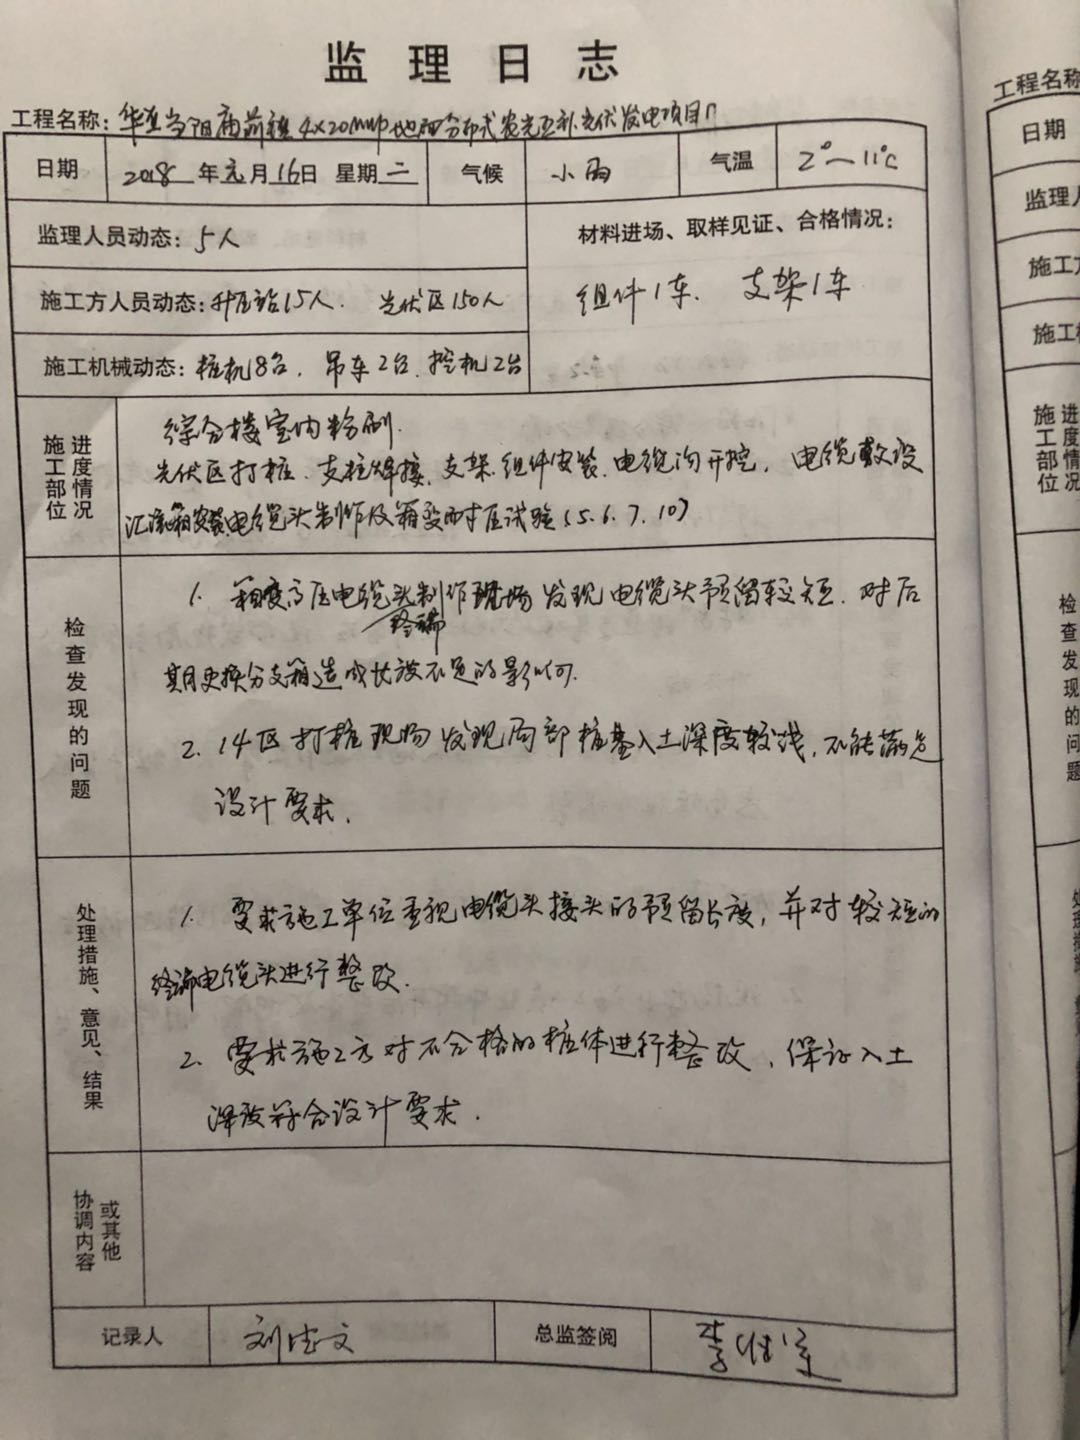 监理日志
工程名称: 华 当阳 前 4×20MWp地面分布式农光互补光伏发电项目
日期 2018年元月16日 星期二 气候 小雨 气温 2°—11℃
监理人员动态: 5人
材料进场、取样见证、合格情况:
组件1车. 支架1车
施工方人员动态: 升压站15人. 光伏区150人
施工机械动态: 桩机8台. 吊车2台. 挖机2台
施工部位进度情况
综合楼室内粉刷.
光伏区打桩. 支柱焊接. 支架.组件安装.电缆沟开挖. 电缆敷设
汇流箱安装.电缆头制作及箱变耐压试验(5.6.7.10)
检查发现的问题
1. 箱变高压电缆头制作现场发现电缆头预留较短. 对后
终端
期更换分支箱造成长度不足的影响.
2. 14区打桩现场发现局部桩基入土深度较浅, 不能满足
设计要求.
处理措施、意见、结果
1. 要求施工单位重视电缆头接头的预留长度, 并对较短的
终端电缆头进行整改.
2. 要求施工方对不合格的桩体进行整改, 保证入土
深度符合设计要求.
协调内容或其他
记录人 刘 文 总监签阅 李
工程名称
日期
监理人
施工方
施工机
施工部位进度情况
检查发现的问题